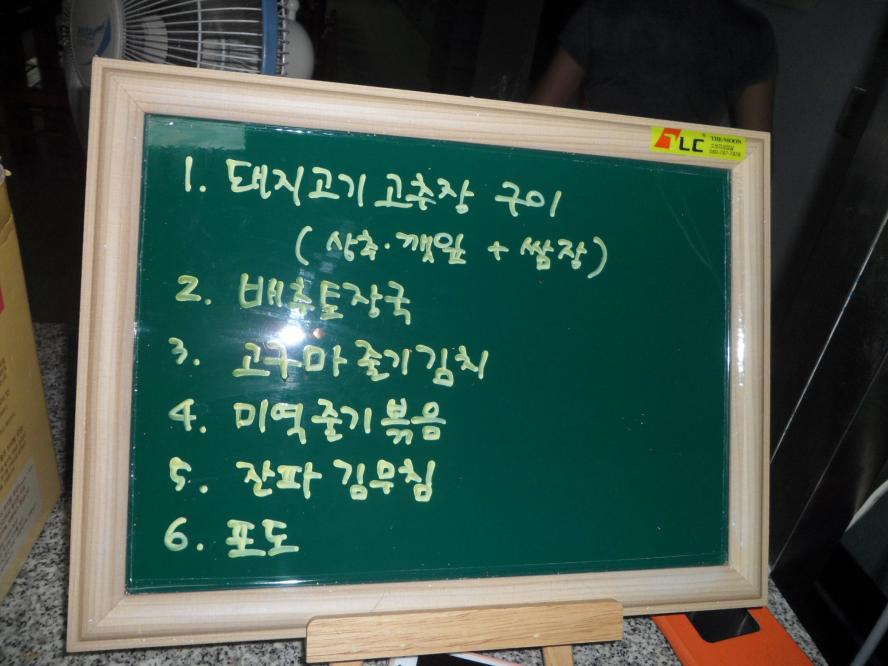 1. 돼지고기 고추장 구이
(상추·깻잎 + 쌈장)
2. 배추토장국
3. 고구마 줄기김치
4. 미역줄기볶음
5. 잔파 김무침
6. 포도
LC
THE MOON